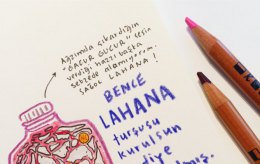 Ağzımda çıkardığın
"GACUR GUCUR" sesin
verdiği hazzı başka
sebzede alamıyorum.
SAĞOL LAHANA!
BENCE
LAHANA
turşusu
kurulsun
diye